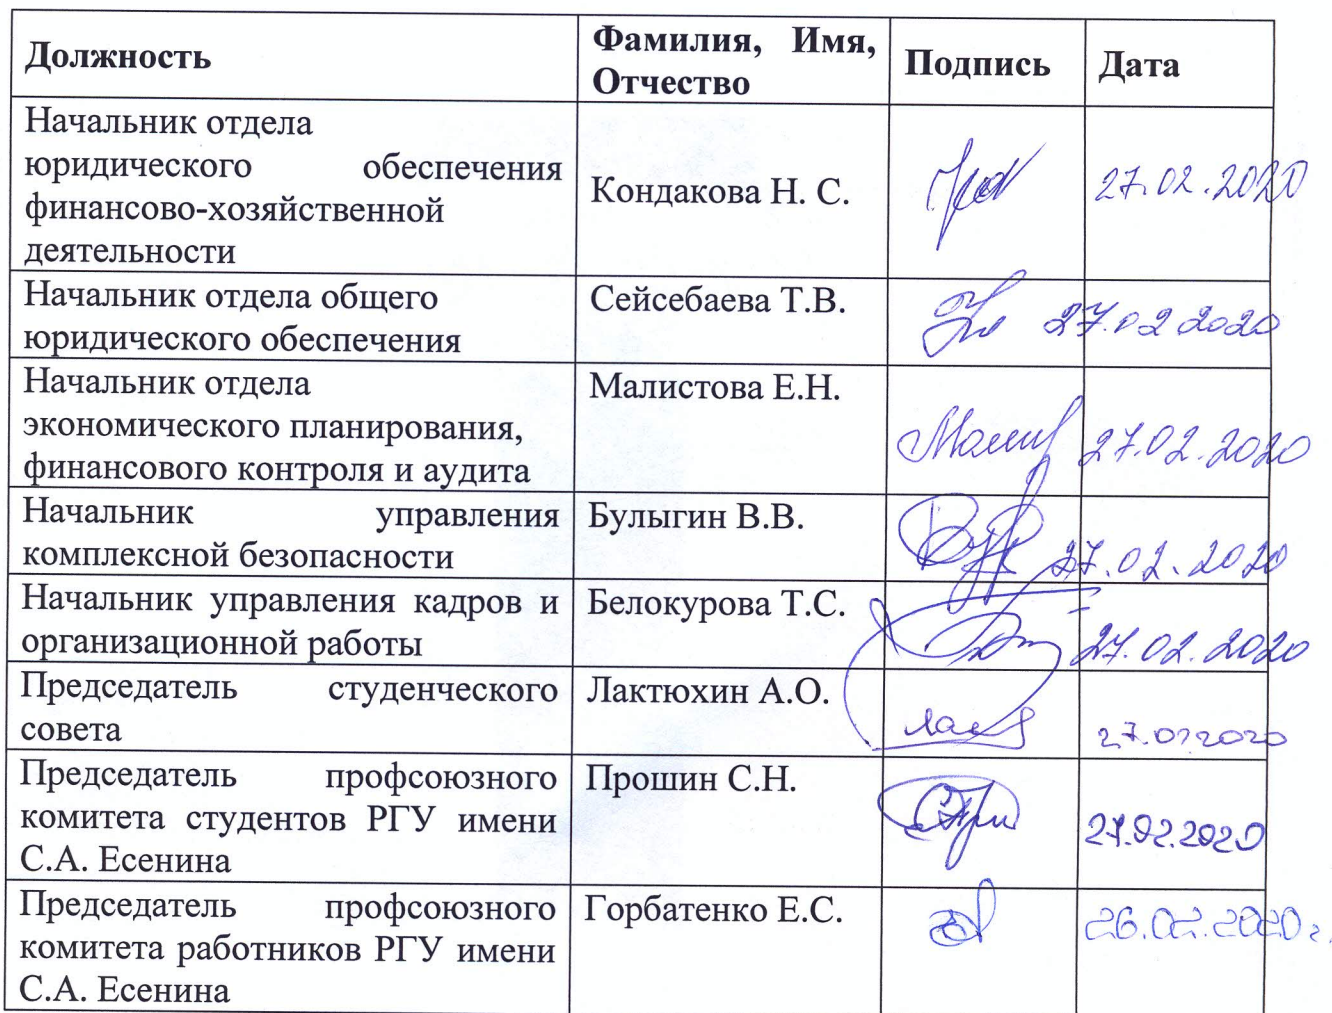 Должность
Фамилия, Имя,
Отчество
Подпись
Дата
Начальник отдела
юридического обеспечения
финансово-хозяйственной
деятельности
Кондакова Н. С.
27.02.2020
Начальник отдела общего
юридического обеспечения
Сейсебаева Т.В.
27.02 2020
Начальник отдела
экономического планирования,
финансового контроля и аудита
Малистова Е.Н.
27.02.2020
Начальник управления
комплексной безопасности
Булыгин В.В.
27.02.2020
Начальник управления кадров и
организационной работы
Белокурова Т.С.
27.02.2020
Председатель студенческого
совета
Лактюхин А.О.
27.02.2020
Председатель профсоюзного
комитета студентов РГУ имени
С.А. Есенина
Прошин С.Н.
27.02.2020
Председатель профсоюзного
комитета работников РГУ имени
С.А. Есенина
Горбатенко Е.С.
26.02.2020 г.